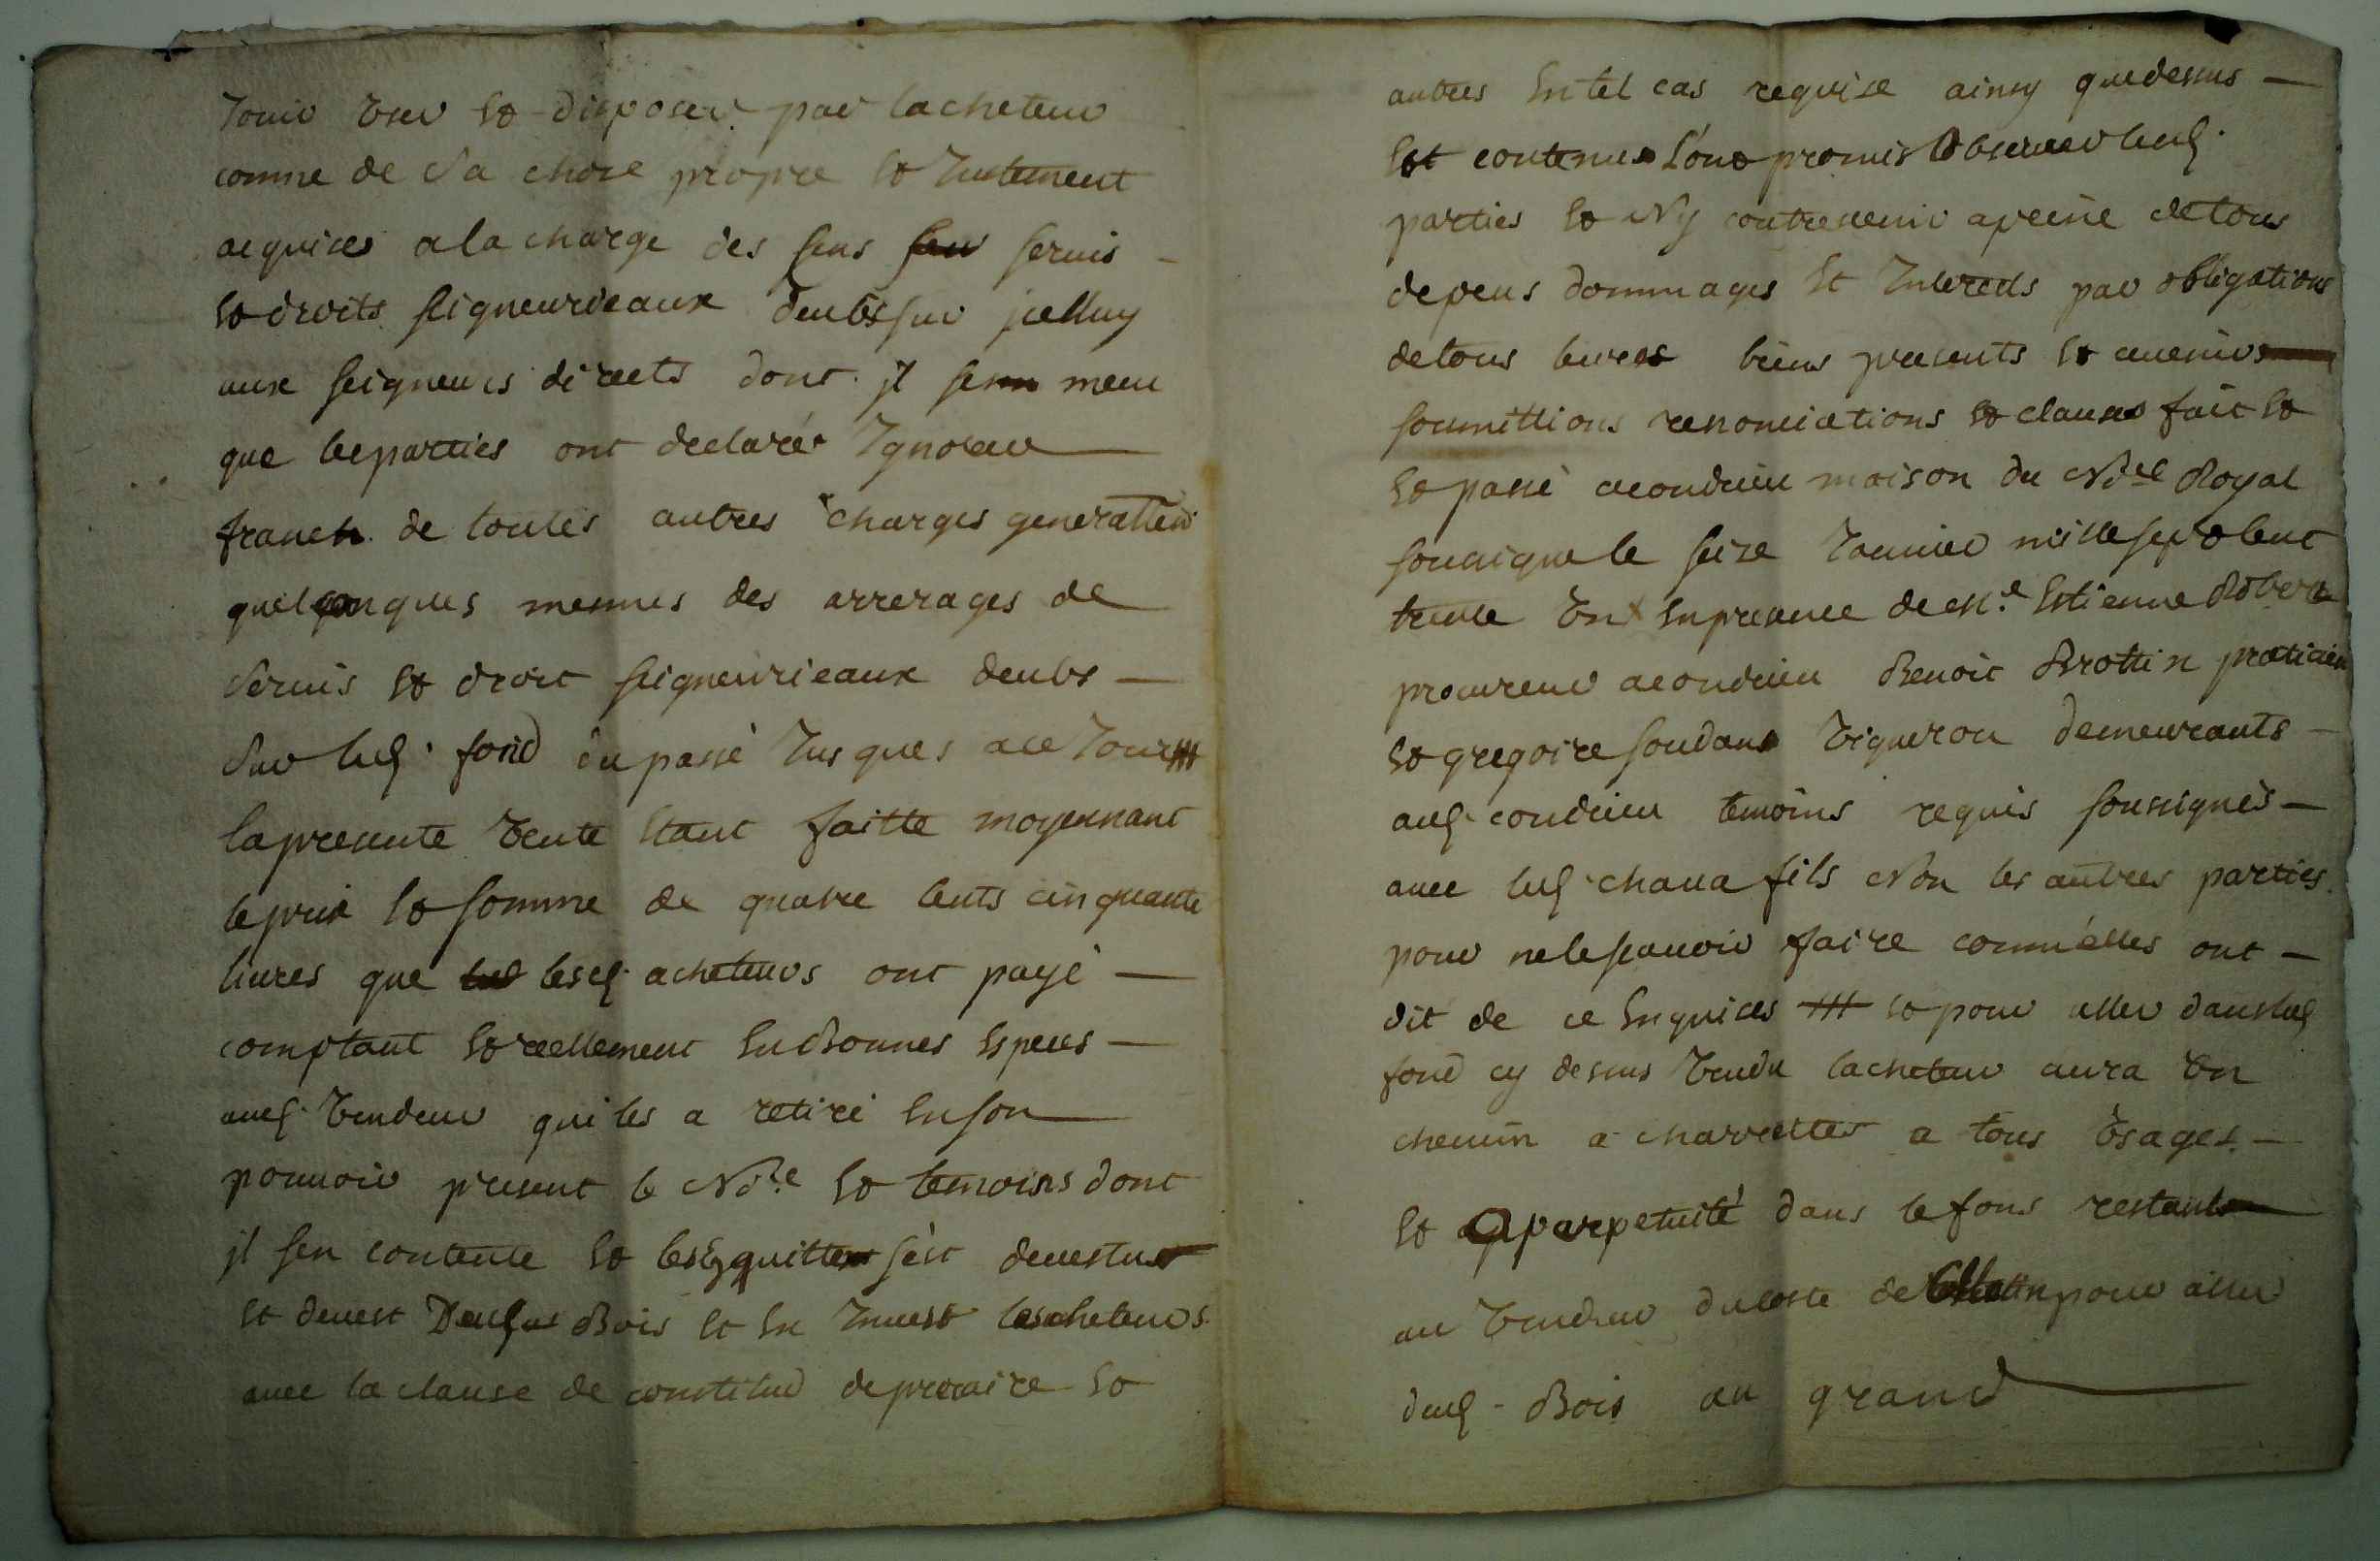 Jouir User Et disposer par lacheteur
comme de Sa chose propre Et Justement
acquises a la charge des sens servis -
Et droits seigneurieaux deubs sur jcelluy
aux seigneurs directs dont jl se meu
que lesparties ont declarés Ignorer
franch de toutes autres charges generallem
quelconques mesmes des arrerages de
Servis Et droit seigneurieaux deubs -
Sur led. fond du passé Jusques ace Jour
lapresente Vente Etant faitte moyennant
leprix Et somme de quatre Cents cinquante
livres que lesd. acheteurs ont payé -
comptant Et reellement En Bonnes Especes -
aud. Vendeur qui les a retiré En son
pouvoir present le Nore Et temoins dont
jl sen contente Et les En quitte s'est devestu
Et devest Dud Bois Et En Invest lesacheteurs
avec la clause de constitud de precaire Et
autres En tel cas requise ainsy quedessus -
Est contenu L'ont promis Observer lesd.
parties Et Ny contrevenir apeine detous
depens dommages Et Interets par obligations
detous leurs biens presents Et avenirs
soumittions renonciations Et clauses fait Et
Et passé acondrieu maison du Nore Royal
soussigne le seize Janvier mille sept Cent
trente Un Enpresence de Me Estienne Robert
procureur acondrieu Benoit Brottin praticien
Et gregoire soudans Vigneron demeurants -
aud. condrieu temoins requis soussignés -
avec led. chava fils Non les autres parties
pour nelesçavoir faire comm'elles ont -
dit de ce Enquises Et pour aller dansled
fond cy dessus Vendu lacheteur aura Un
chemin a charrettes a tous Usages -
Et aparpetuité dans lefons restant
au Vendeur ducoste de pour aller
dud. Bois au grand